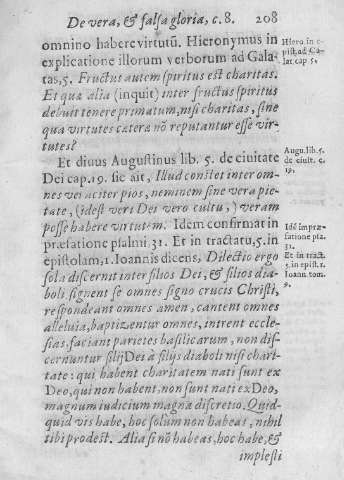 De vera, & falsa gloria, c. 8. 208
omnino habere virtutũ. Hieronymus in
explicatione illorum verborum ad Gala
tas, 5. Fructus autem spiritus est charitas.
Et quæ alia (inquit) inter fructus spiritus
debuit tenere primatum, nisi charitas, sine
qua virtutes cæteræ nõ reputantur esse vir-
tutes?
Et diuus Augustinus lib. 5. de ciuitate
Dei cap. 19. sic ait, Illud constet inter om
nes veraciter pios, neminem sine vera pie
tate, (idest veri Dei vero cultu,) veram
posse habere virtutem. Idem confirmat in
præfatione psalmi 31. Et in tractatu, 5. in
epistolam, 1. Ioannis dicens, Dilectio ergo
sola discernit inter filios Dei, & filios dia-
boli signent se omnes signo crucis Christi,
respondeant omnes amen, cantent omnes
alleluia, baptizẽtur omnes, intrent eccle
sias, faciant parietes basilicarum, non dis-
cernuntur filij Dei à filijs diaboli nisi chari
tate: qui habent charitatem nati sunt ex
Deo, qui non habent, non sunt nati ex Deo,
magnum iudicium magna discretio. Quid-
quid vis habe, hoc solum non habeas, nihil
tibi prodest. Alia si nõ habeas, hoc habe, &
implesti
Hiero in e-
pist. ad Ga-
lat cap 5.
Augu. lib. 5.
de ciuit. c.
19.
Idẽ impræ-
fatione psa.
31.
Et in tract.
5. in epist. 1.
Ioann. tom.
9.